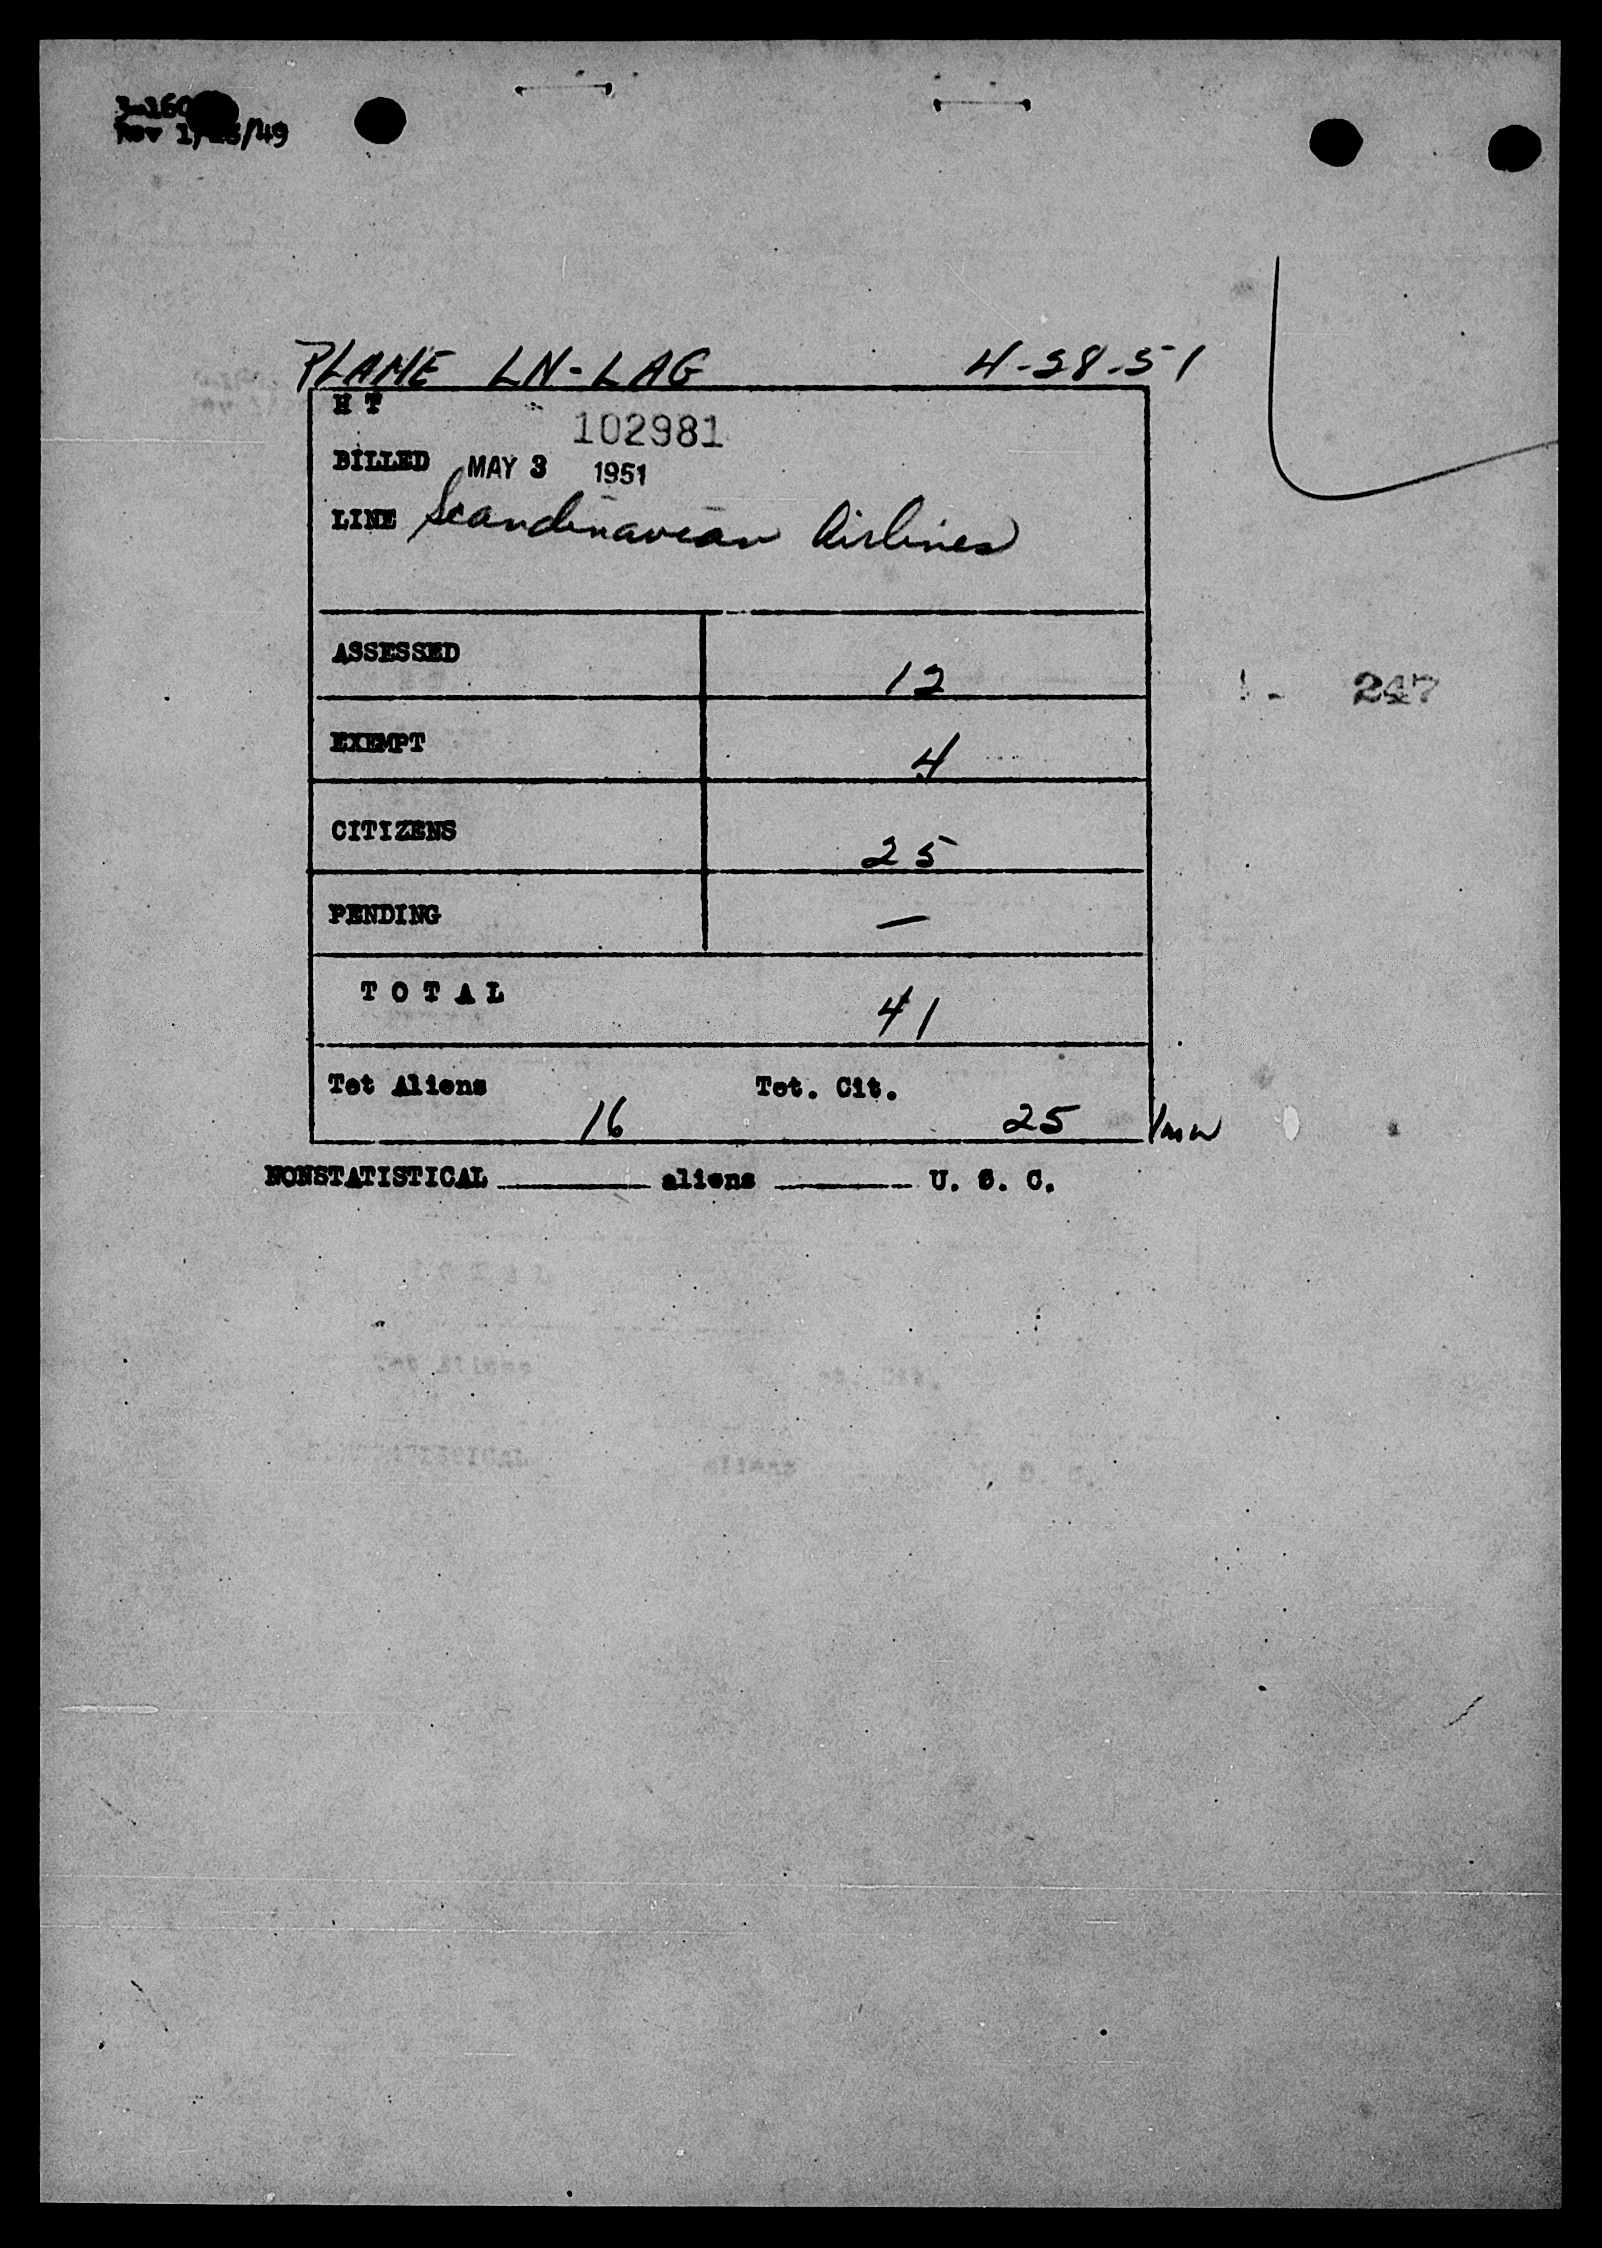 3-160
Rev 1/ /49
PLANE LN-LAG 4-28-51
H T
102981
BILLED MAY 3 1951
LINE Scandinavian Airlines
ASSESSED 12
EXEMPT 4
CITIZENS 25
PENDING —
T O T A L 41
Tot Aliens 16 Tot. Cit. 25
NONSTATISTICAL ______ aliens ______ U. S. C.
247